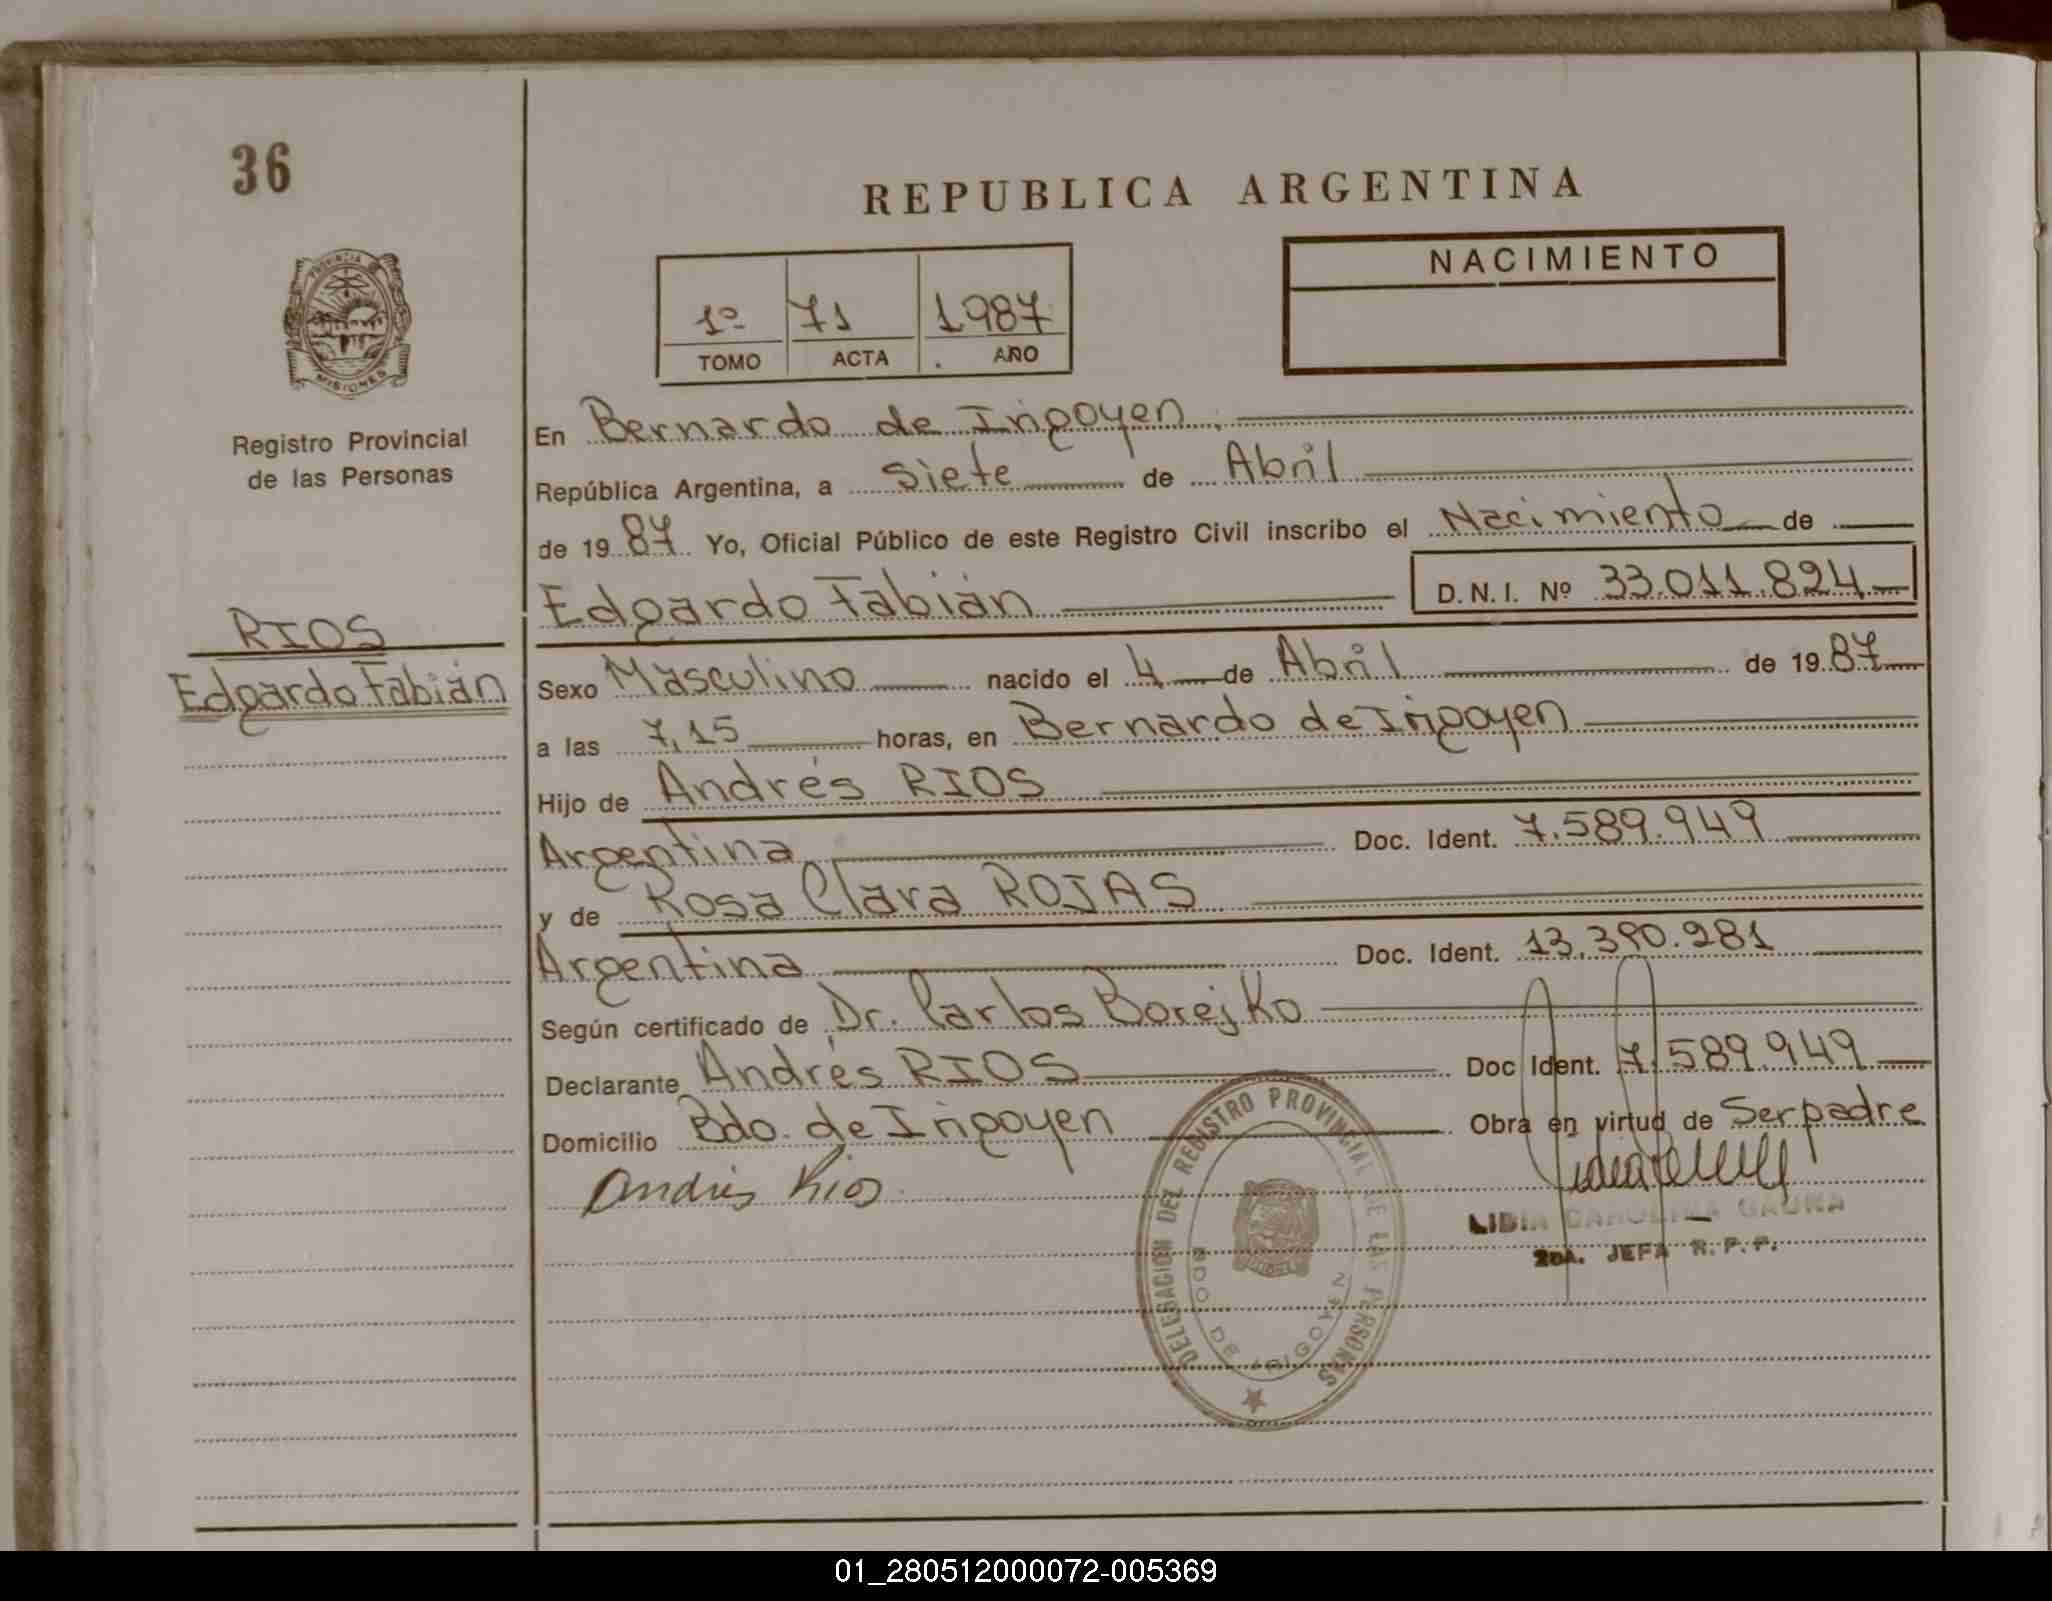 36
REPUBLICA ARGENTINA
NACIMIENTO
1º 71 1987
TOMO ACTA AÑO
PROVINCIA
MISIONES
Registro Provincial
de las Personas
RIOS
Edgardo Fabián
En Bernardo de Irigoyen
República Argentina, a siete de Abril
de 1987 Yo, Oficial Público de este Registro Civil inscribo el Nacimiento de
Edgardo Fabián D.N.I. Nº 33.011.824
Sexo Masculino nacido el 4 de Abril de 1987
a las 7,15 horas, en Bernardo de Irigoyen
Hijo de Andrés RIOS
Argentina Doc. Ident. 7.589.949
y de Rosa Clara ROJAS
Argentina Doc. Ident. 13.390.281
Según certificado de Dr. Carlos Borejko
Declarante Andrés RIOS Doc Ident. 7.589.949
Domicilio Bdo. de Irigoyen Obra en virtud de Ser padre
Andrés Rios
LIDIA CAROLINA GAUNA
2DA. JEFA R.P.P.
DELEGACION DEL REGISTRO PROVINCIAL DE LAS PERSONAS
BDO DE IRIGOYEN
01_280512000072-005369